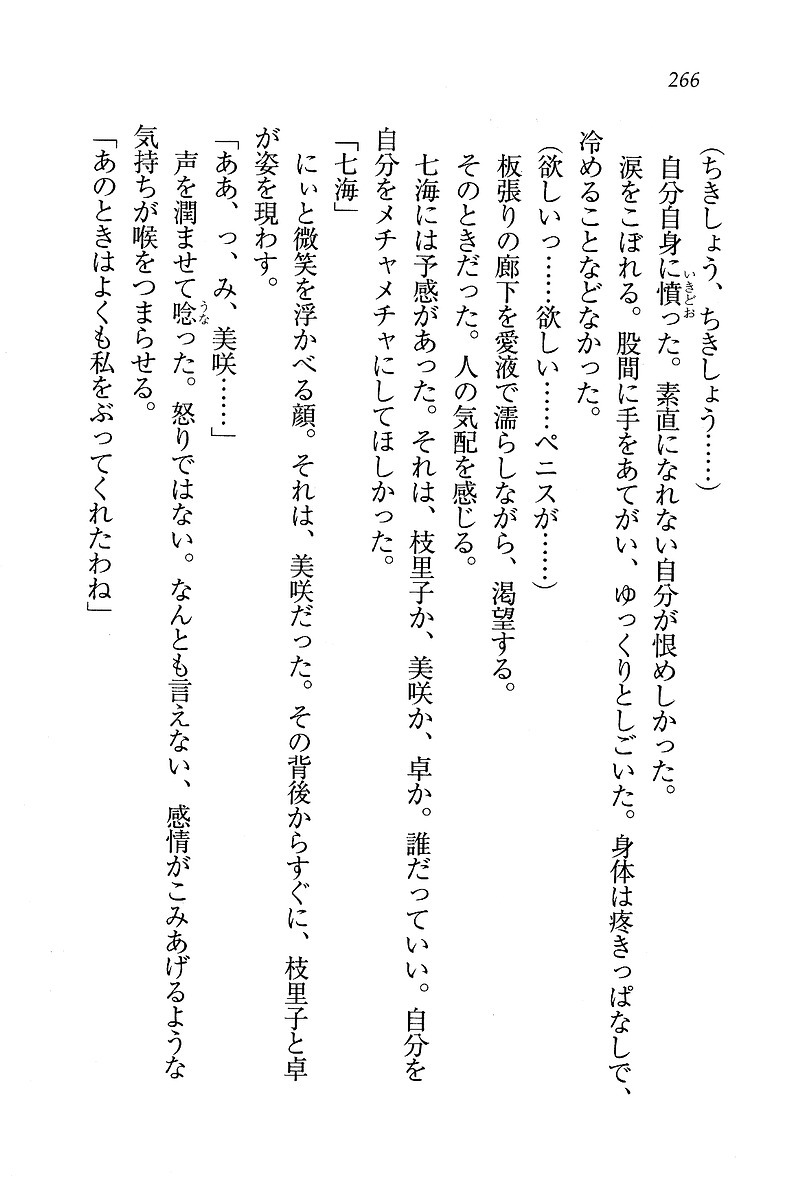 266
(ちきしょう、ちきしょう……)
自分自身に憤った。素直になれない自分が恨めしかった。
いきどお
涙をこぼれる。股間に手をあてがい、ゆっくりとしごいた。身体は疼きっぱなしで、
冷めることなどなかった。
(欲しいっ……欲しい……ペニスが……)
板張りの廊下を愛液で濡らしながら、渇望する。
そのときだった。人の気配を感じる。
七海には予感があった。それは、枝里子か、美咲か、卓か。誰だっていい。自分を
自分をメチャメチャにしてほしかった。
「七海」
にぃと微笑を浮かべる顔。それは、美咲だった。その背後からすぐに、枝里子と卓
が姿を現わす。
「ああ、っ、み、美咲……」
声を潤ませて唸った。怒りではない。なんとも言えない、感情がこみあげるような
うな
気持ちが喉をつまらせる。
「あのときはよくも私をぶってくれたわね」